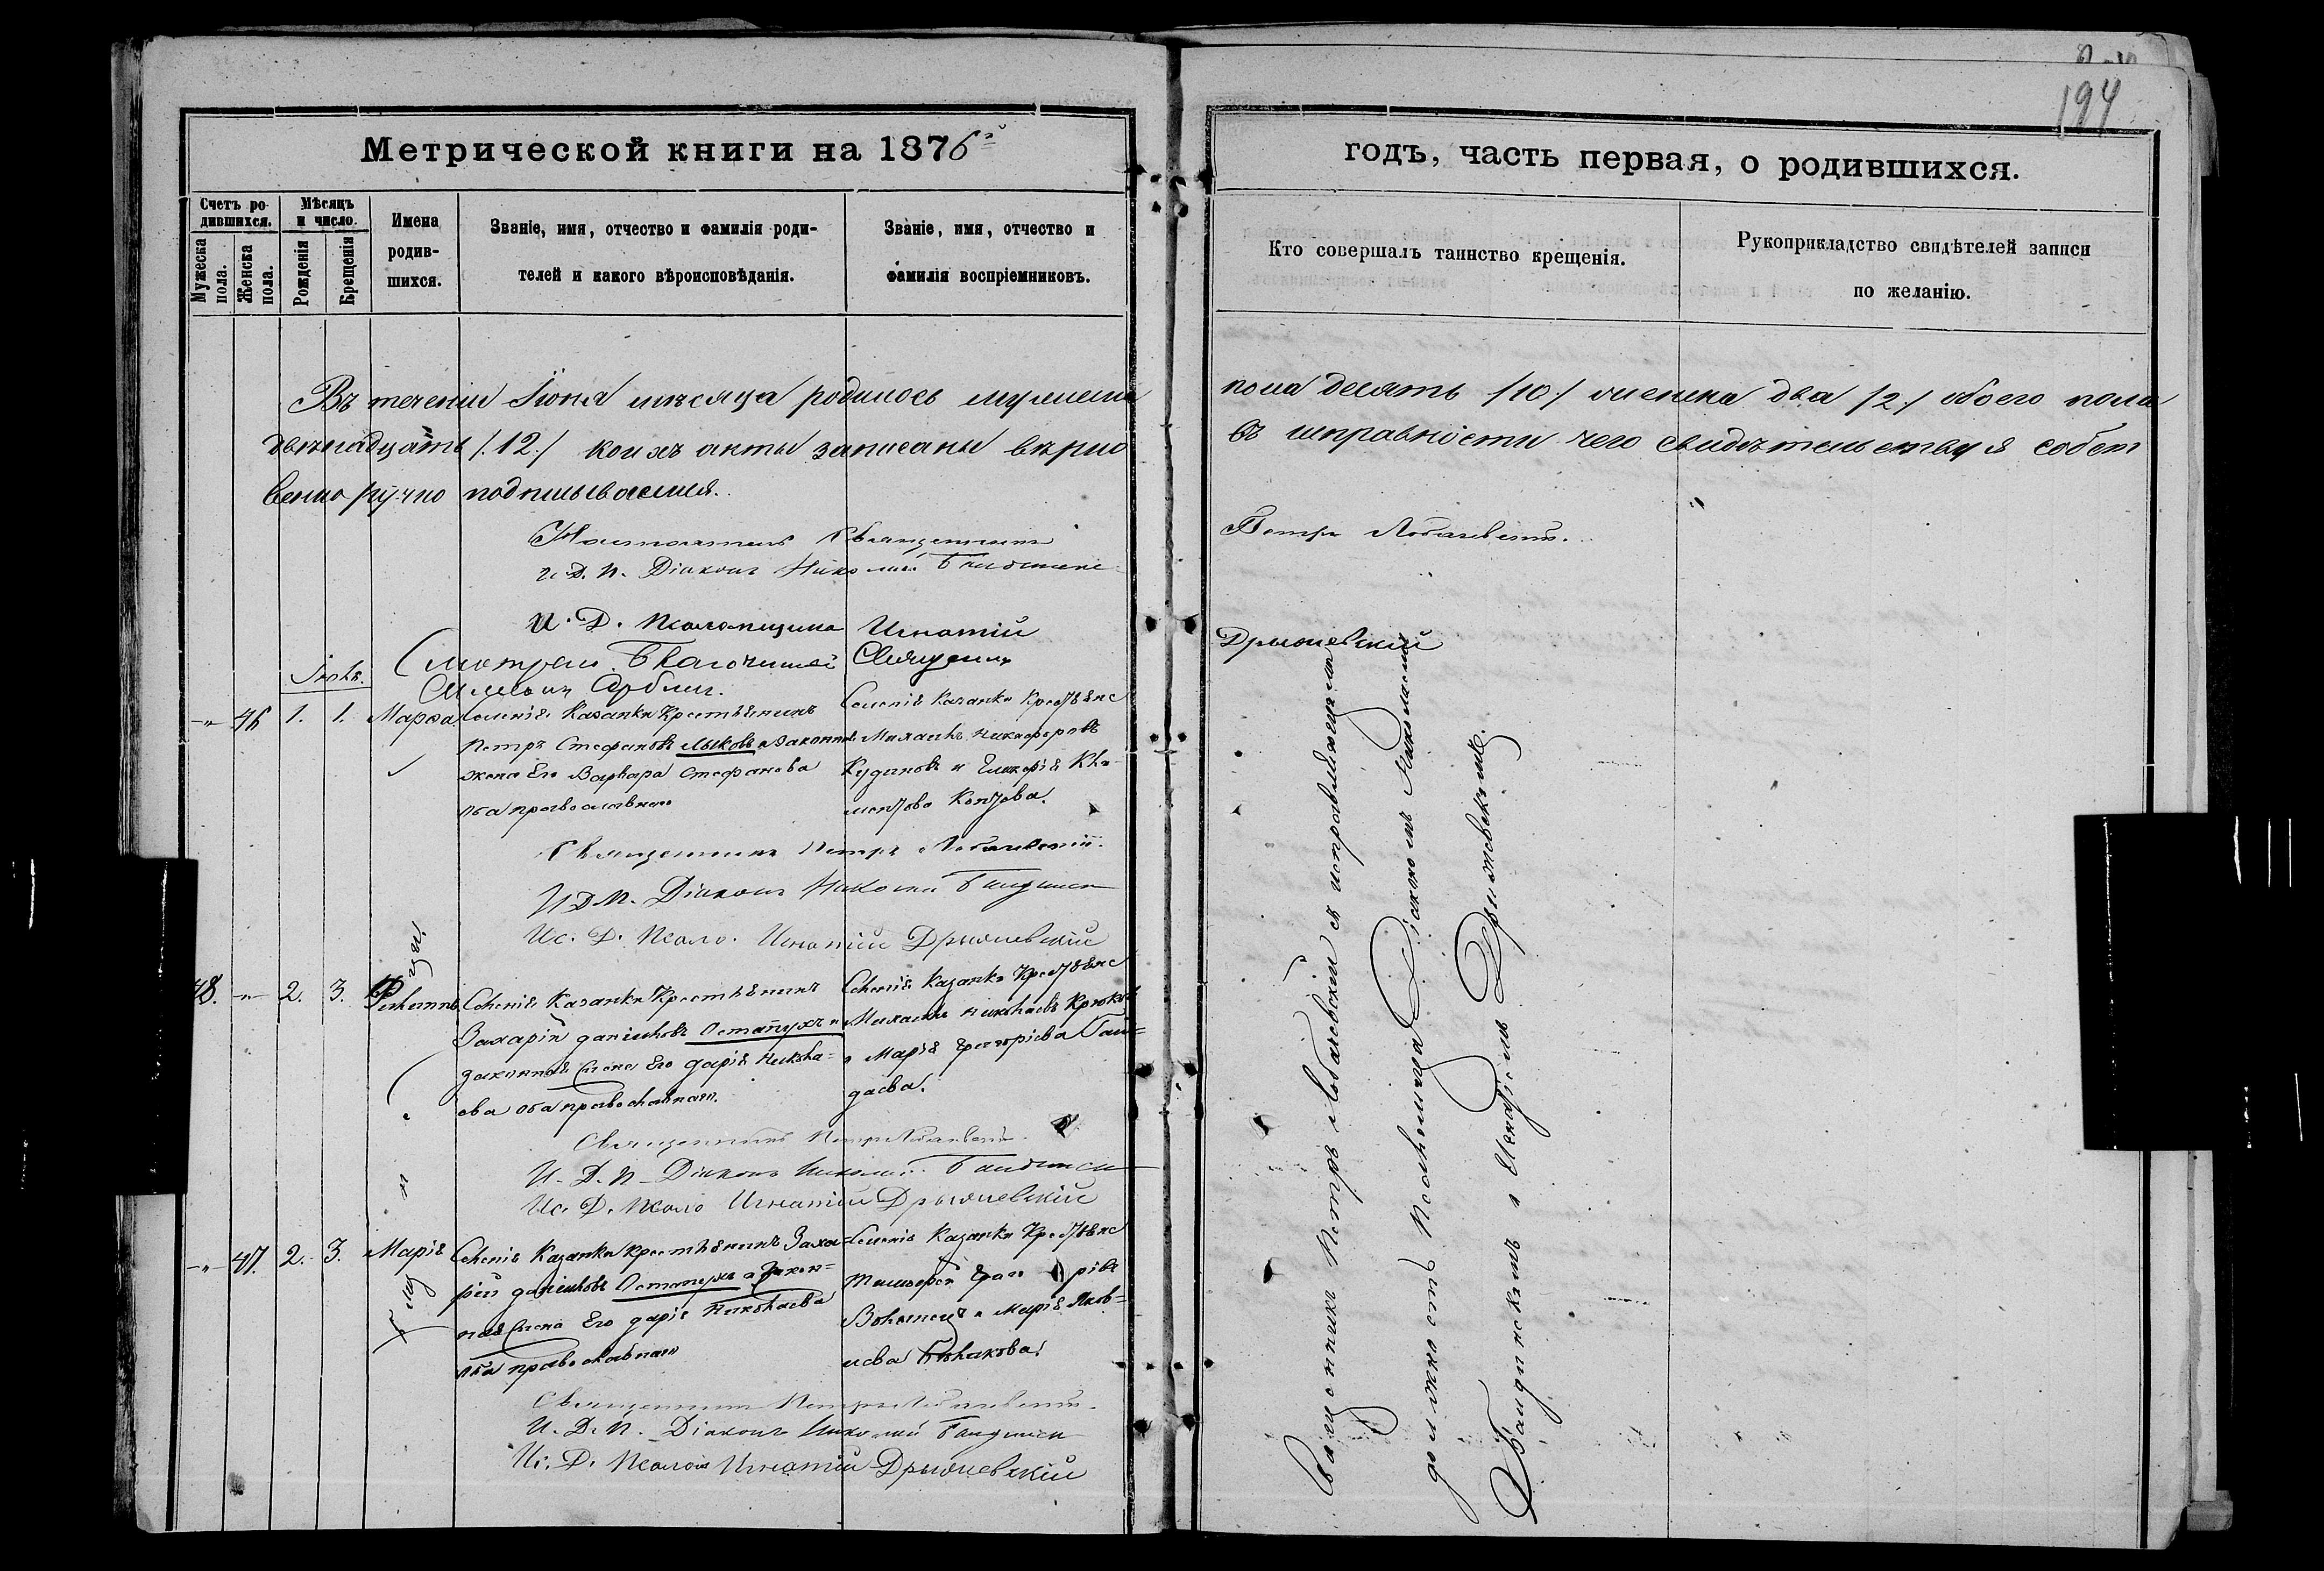 194
Метрической книги на 1876й
годъ, часть первая, о родившихся.
Счетъ ро-
дившихся.
Мужеска
пола.
Женска
пола.
Мѣсяцъ
и число.
Рожденія
Крещенія
Имена
родив-
шихся.
Званіе, имя, отчество и фамилія роди-
телей и какого вѣроисповѣданія.
Званіе, имя, отчество и
фамилія воспріемниковъ.
Кто совершалъ таинство крещенія.
Рукоприкладство свидѣтелей записи
по желанію.
Въ теченіи Іюня мѣсяца родилось мужеска
пола десять /10./ женска два /2./ обоего пола
двѣнадцать /.12./ коихъ акты записаны вѣрно
въ исправности чего свидѣтельствуя собст
венно ручно подписываемся.
Священникъ
Петръ Лобачевскій.
И. Д. П. Діаконъ Николай
И. Д. Псаломщика Игнатій
Дрыжевскій
Смотрѣлъ Благочинный Священникъ
Іюль.
-"- 46 1. 1. Марѳа
Селенія Казанки Крестьянинъ
Петръ Стефановъ Лыковъ и законная
жена Его Варвара Стефанова
оба православнаго
Селенія Казанки Крестьянс
Михаилъ Никифоровъ
Кудиновъ и Гликерія Кле-
ментова
Священникъ Петръ Лобачевскій.
И Д П. Діаконъ Николай
Ис. Д. Псало. Игнатій Дрыжевскій
48. -"- 2. 3. Филиппъ
Селенія Казанки Крестьянинъ
Захарій Даніиловъ Остапухъ и
законная Жена Его Дарія Никола=
ева оба православнаго.
Селенія Казанки Крестьянс
Михаилъ Николаевъ Крюковъ
и Марія Григоріева Гай=
даева.
Священникъ Петръ Лобачевскій.
И. Д. П. Діаконъ Николай
Ис. Д. Псало Игнатій Дрыжевскій
-"- 47. 2. 3. Марія
Селенія Казанки Крестьянинъ Заха=
рій Даніиловъ Остапухъ и Закон=
ная Жена Его Дарія Николаева
оба православнаго
Селенія Казанки Крестьянс
Тимофей Григоріевъ
и Марія Яков=
лева
Священникъ Петръ Лобачевскій.
И. Д. П. Діаконъ Николай
Ис. Д. Псалом Игнатій Дрыжевскій
Священникъ Петръ Лобачевскій съ исправляющимъ
должность Псаломщика Діакономъ Николаемъ
Бандинскимъ и Игнатіемъ Дрижевскимъ.